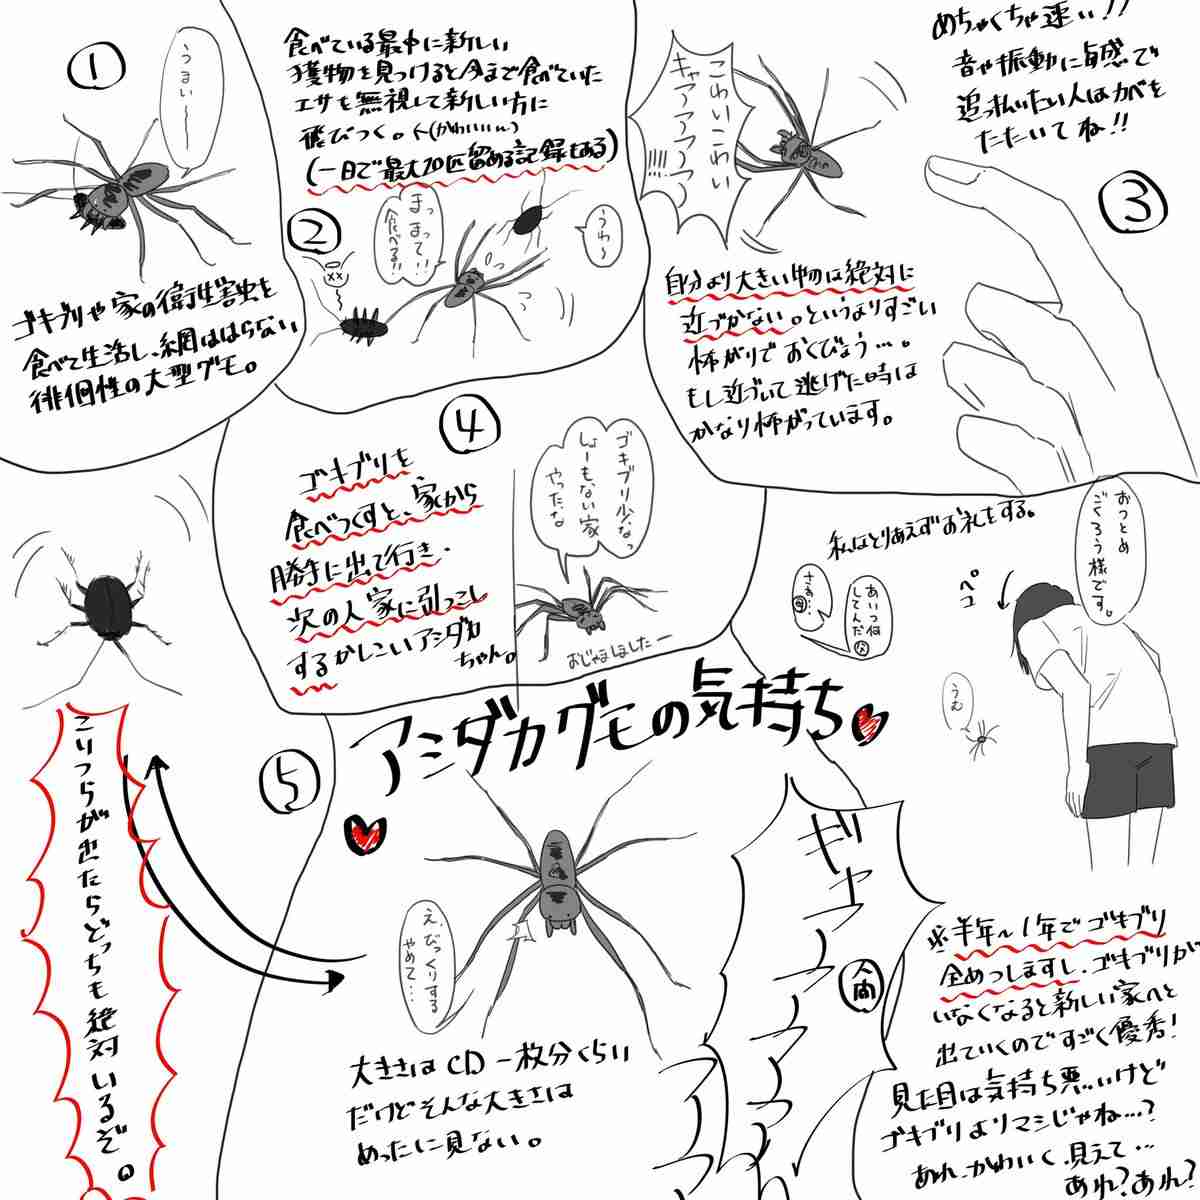 ①
うまい〜
ゴキブリや家の衛生害虫を
食べて生活し、網ははらない
徘徊性の大型グモ。
食べている最中に新しい
獲物を見つけると今まで食べていた
エサも無視して新しい方に
飛びつく。←(かわいいん)
(一日で最大20匹留める記録もある)
②
まっ
まって!!
食べる!!
うわ〜
××
こわいこわい
キャアアアア
!!!!
めちゃくちゃ速い!!
音や振動に敏感で
追っ払いたい人はカベを
たたいてね!!
③
自分より大きい物には絶対に
近づかない。というよりすごい
怖がりでおくびょう…。
もし近づいて逃げた時は
かなり怖がっています。
④
ゴキブリを
食べつくすと、家から
勝手に出て行き、
次の人家に引っこし
するかしこいアシダカ
ちゃん。
ゴキブリ少なっ
しょーもない家
やったな
おじゃましましたー
私はとりあえずお礼をする。
おつとめ
ごくろう様です。
ペコ
あいつ何
してんだ父
さあ…母
うむ
アシダカグモの気持ち
⑤
こいつらが出たらどっちも絶対いるぞ。
え、びっくりする
やめて…
大きさはCD一枚分くらい
だけどそんな大きさは
めったに見ない。
ギャアアアアアア
人間
※半年〜1年でゴキブリ
全めつしますし、ゴキブリが
いなくなると新しい家へと
出ていくのですごく優秀!
見た目は気持ち悪いけど
ゴキブリよりマシじゃね…?
あれ、かわいく見えて…
あれ?あれ?